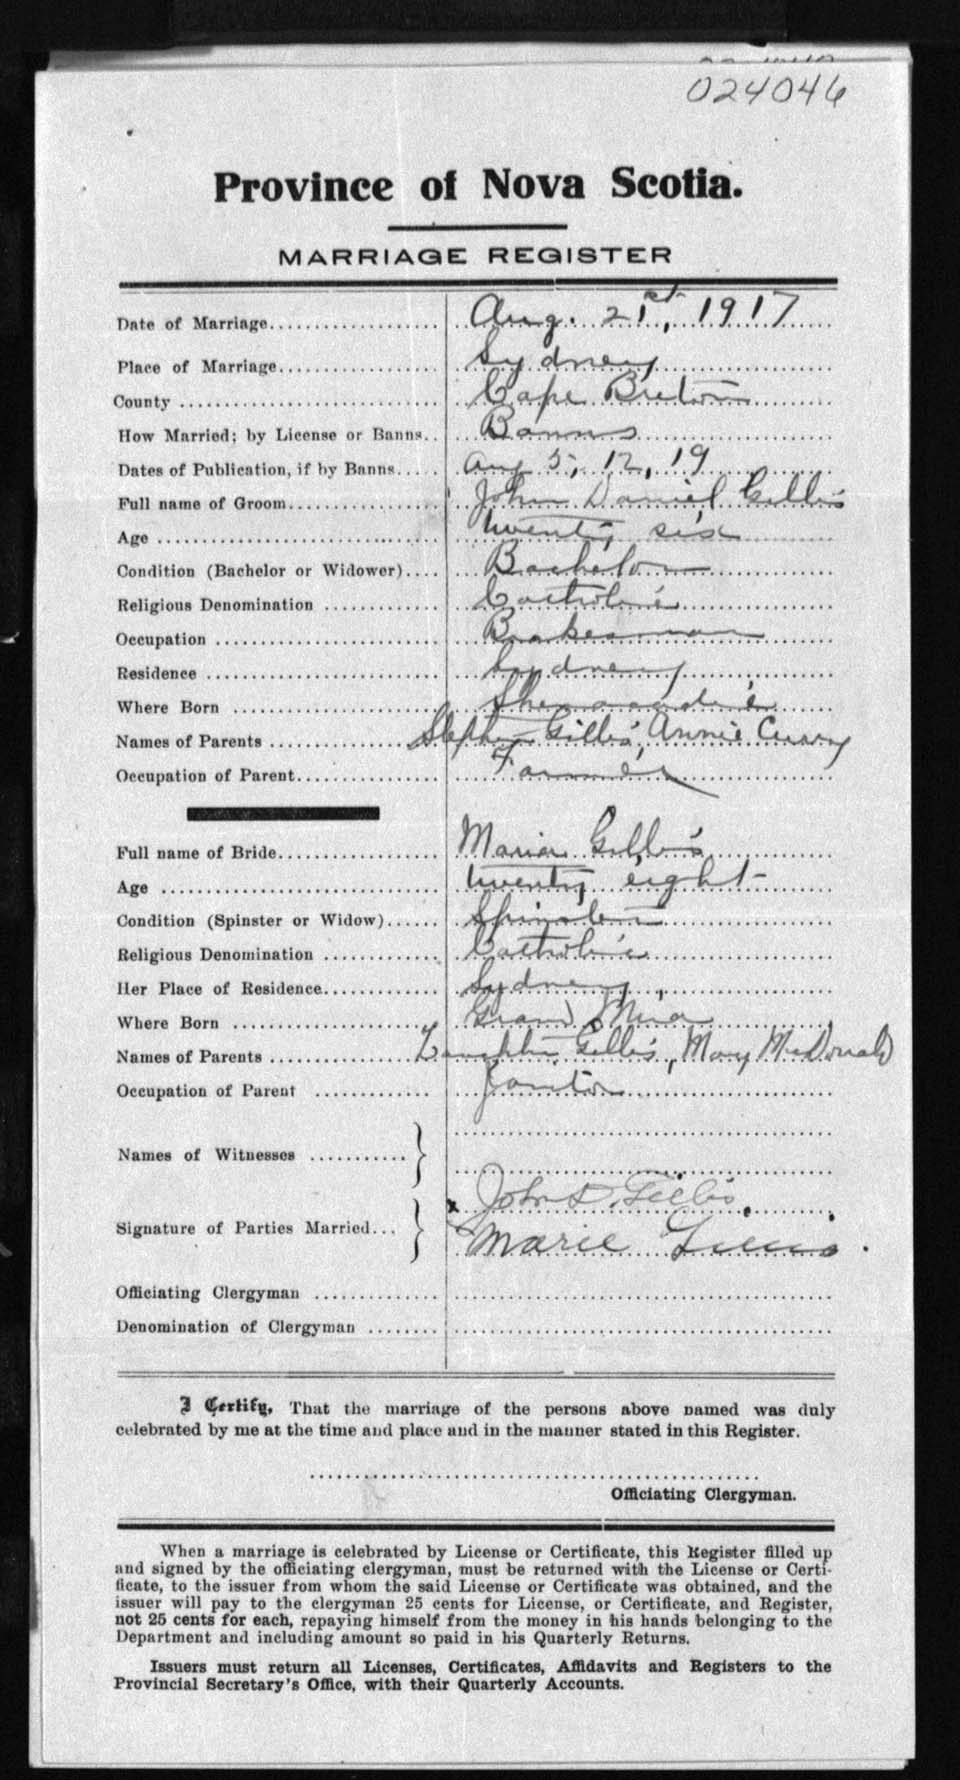 024046
Province of Nova Scotia.
MARRIAGE REGISTER
Date of Marriage Aug. 21st, 1917
Place of Marriage Sydney
County Cape Breton
How Married; by License or Banns Banns
Dates of Publication, if by Banns Aug 5, 12, 19
Full name of Groom John Daniel Gillis
Age twenty six
Condition (Bachelor or Widower) Bachelor
Religious Denomination Catholic
Occupation Brakesman
Residence Sydney
Where Born Shenacadie
Names of Parents Stephen Gillis, Annie Curry
Occupation of Parent Farmer
Full name of Bride Maria Gillis
Age twenty eight
Condition (Spinster or Widow) Spinster
Religious Denomination Catholic
Her Place of Residence Sydney
Where Born Grand Mira
Names of Parents Lauchlin Gillis, Mary McDonald
Occupation of Parent Janitor
Names of Witnesses
x John D. Gillis
Signature of Parties Married
Marie Gillis.
Officiating Clergyman
Denomination of Clergyman
I Certify, That the marriage of the persons above named was duly
celebrated by me at the time and place and in the manner stated in this Register.
Officiating Clergyman.
When a marriage is celebrated by License or Certificate, this Register filled up
and signed by the officiating clergyman, must be returned with the License or Certi-
ficate, to the issuer from whom the said License or Certificate was obtained, and the
issuer will pay to the clergyman 25 cents for License, or Certificate, and Register,
not 25 cents for each, repaying himself from the money in his hands belonging to the
Department and including amount so paid in his Quarterly Returns.
Issuers must return all Licenses, Certificates, Affidavits and Registers to the
Provincial Secretary's Office, with their Quarterly Accounts.